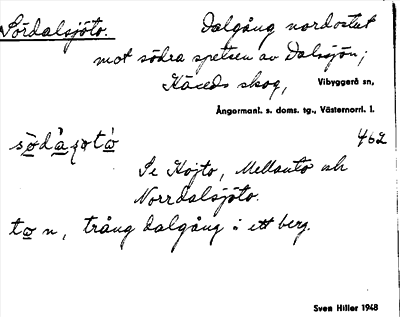 Sördalsjöto. Dalgång nordostut
mot södra spetsen av Dalsjön;
skog, Vibyggerå sn,
Ångermanl. s. doms. tg., Västernorrl. l.
462
Se Kojto, Mellanto och
Norrdalsjöto.
to n, trång dalgång i ett berg.
Sven Hiller 1948